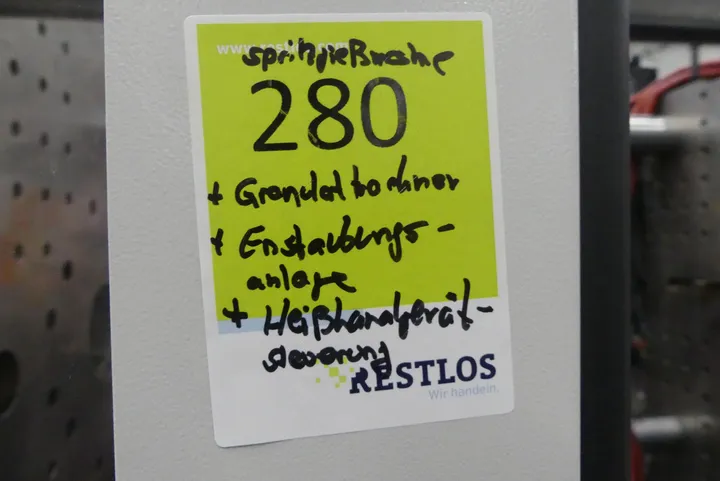 www.restlos.com
Spritzgießmaschine
280
+ Granulattrockner
+ Enstaubungs-
anlage
+ Heißkanalgerät-
steuerung
RESTLOS
Wir handeln.